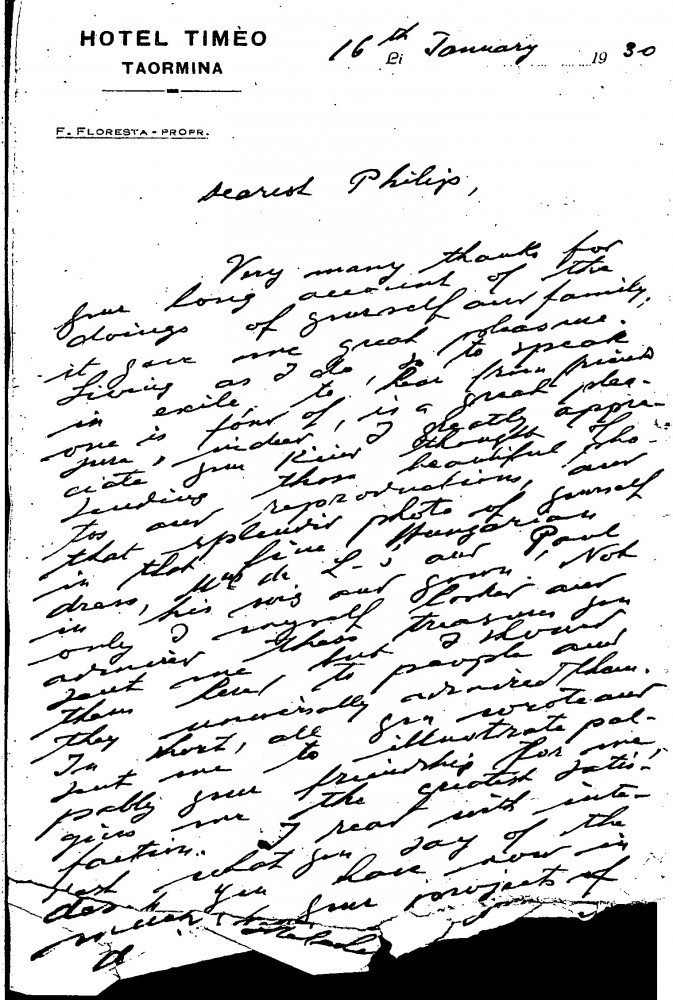 HOTEL TIMÈO
TAORMINA
16th Li January 1930
F. FLORESTA - PROPR.
Dearest Philip,
Very many thanks for
your long account of the
doings of yourself and family,
it gave me great pleasure.
Living as I do, so to speak
in exile, to hear from friends
one is fond of, is a great plea-
sure, indeed I greatly appre-
ciate your kind thought
sending those beautiful pho-
tos and reproductions, and
that splendid photo of yourself
in that fine Hungarian
dress, de L-s' and Paul
in his wig and gown. Not
only I myself looked and
admired these treasures you
sent me, but I showed
them to people and
they universally admired them.
In short, all you wrote and
sent me to illustrate pal-
pably your friendship for me,
gives me the greatest satis-
faction. I read with inte-
rest what you say of the
you have now in
your projects of